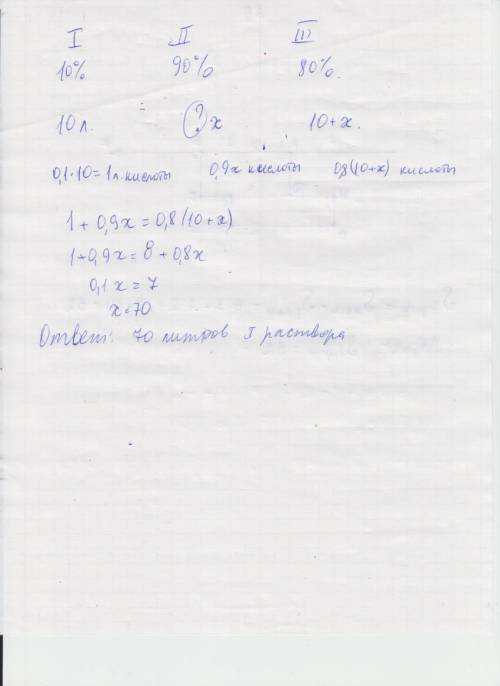 I II III
10% 90% 80%.
10 л. ? x 10+x.
0,1·10=1л. кислоты 0,9x кислоты 0,8(10+x) кислоты
1+0,9x=0,8(10+x)
1+0,9x=8+0,8x
0,1x=7
x=70
Ответ: 70 литров I раствора